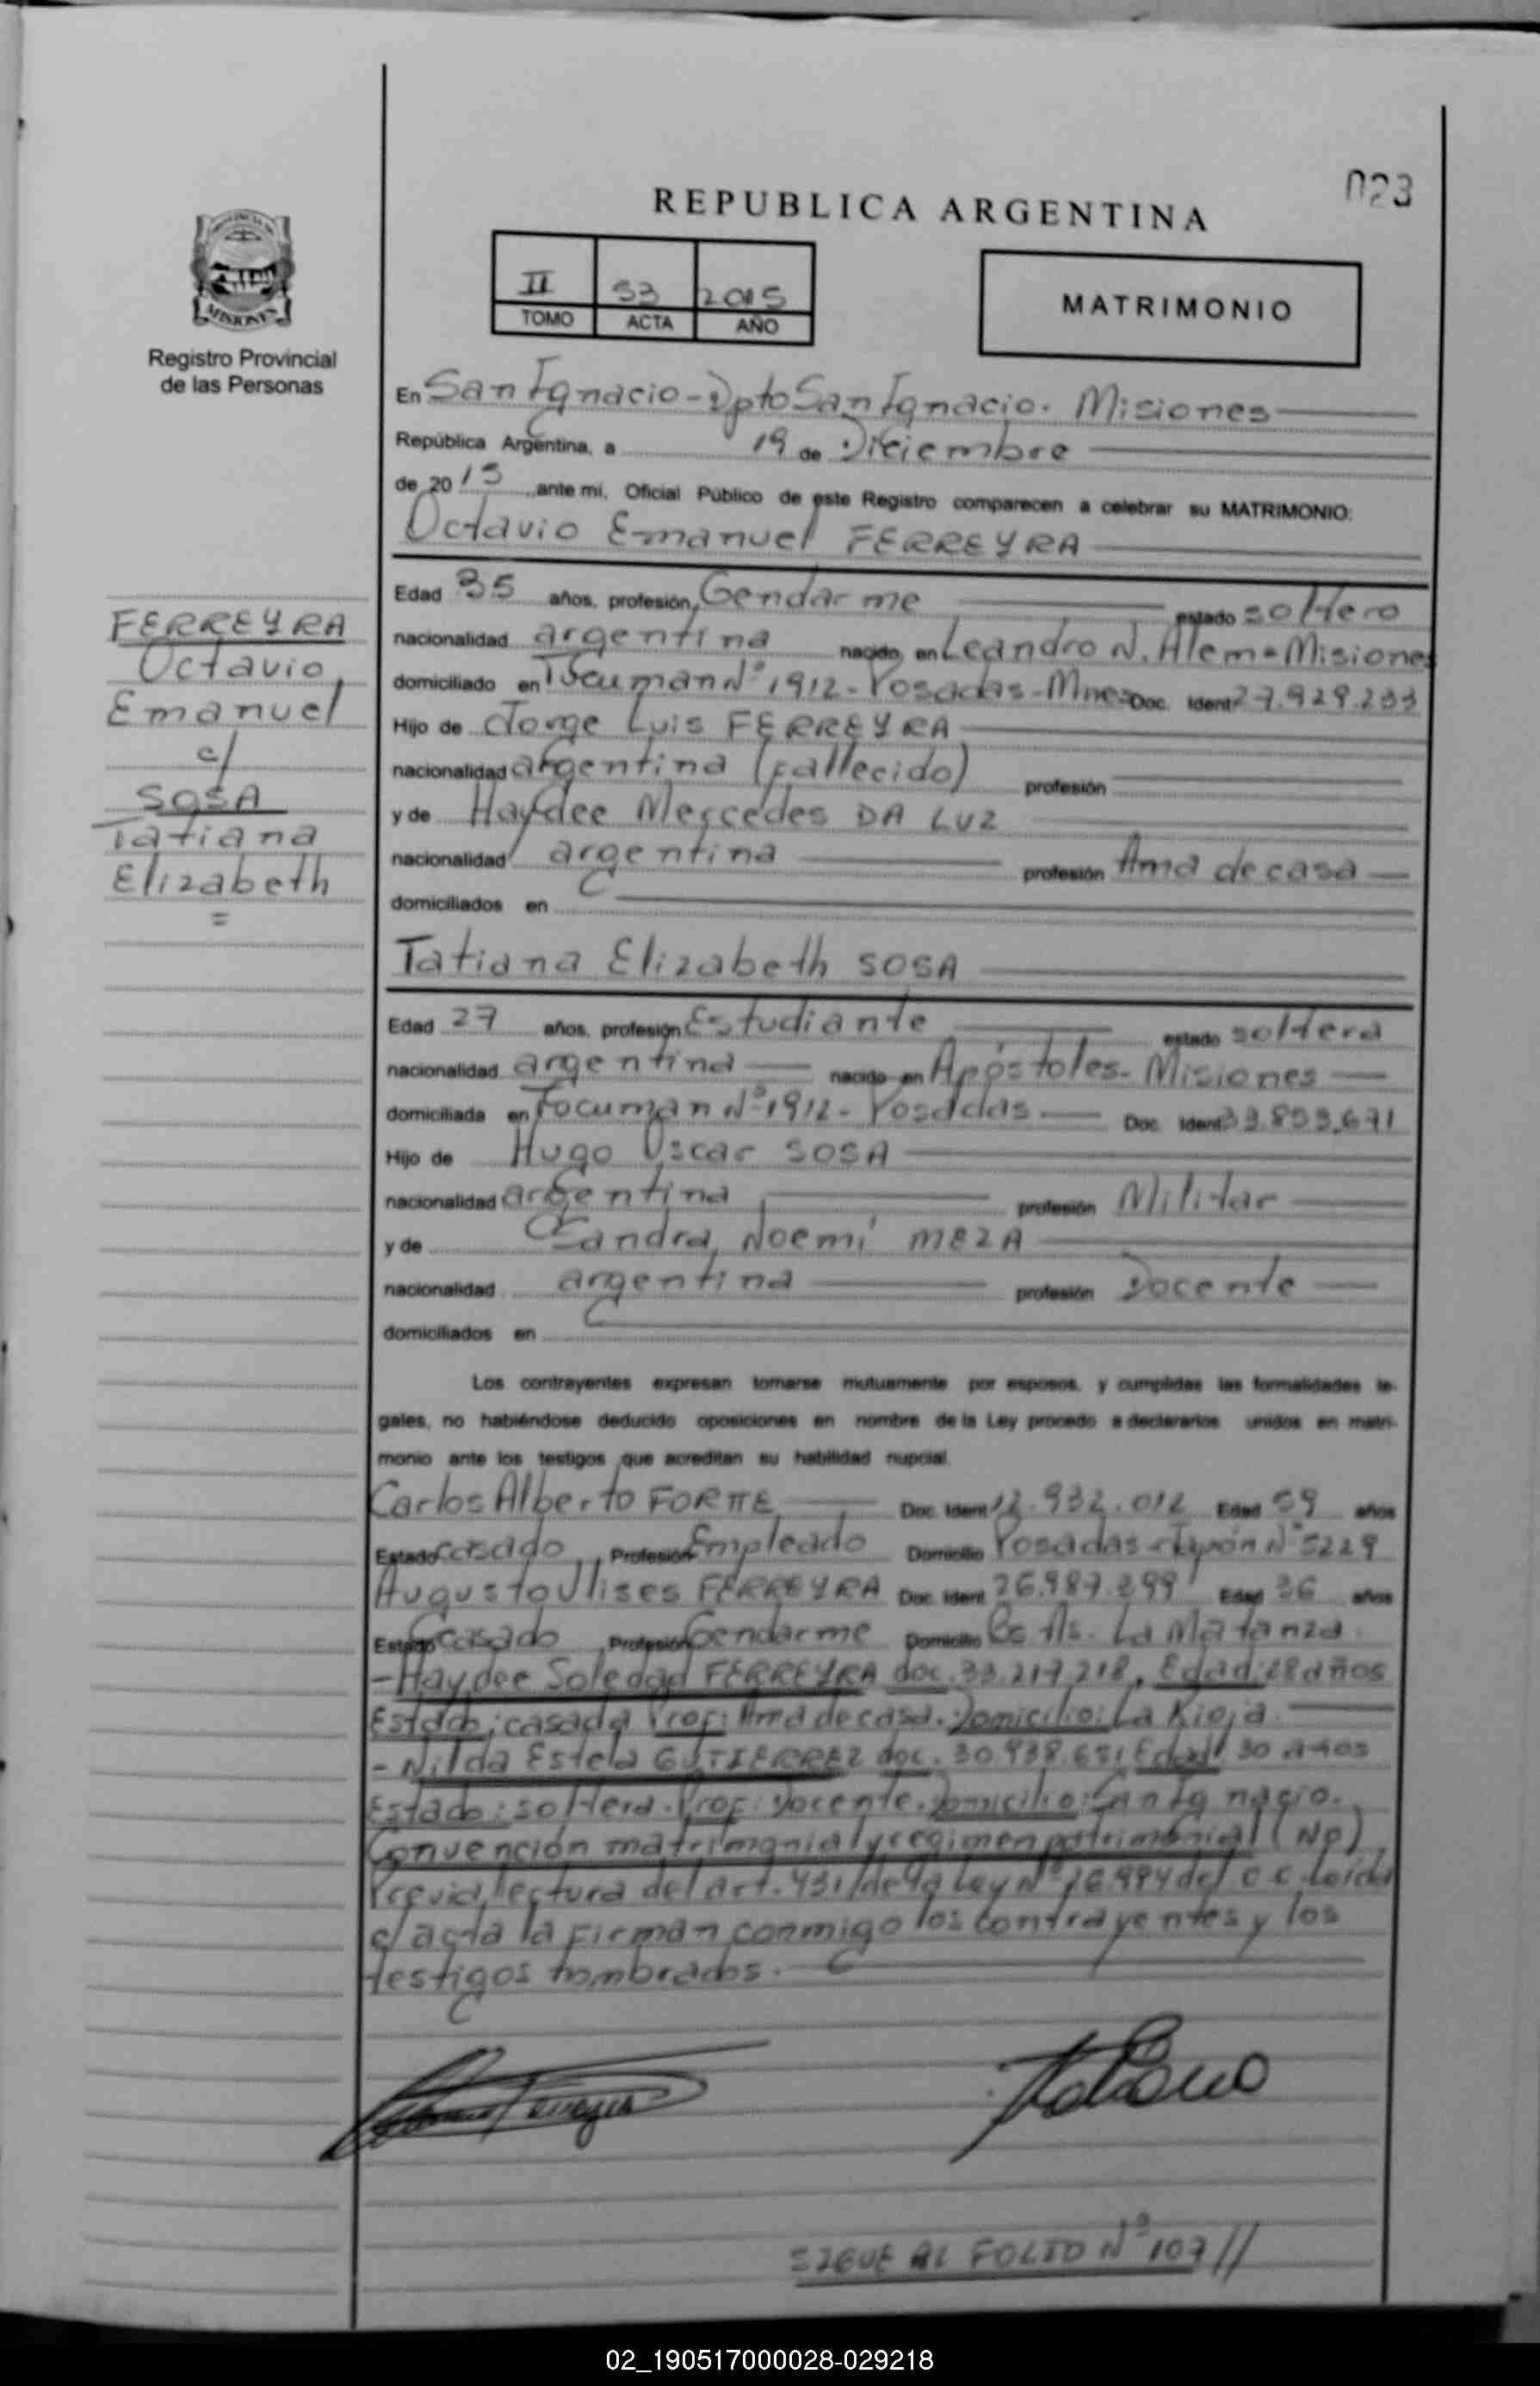 023
REPUBLICA ARGENTINA
II 53 2015
TOMO ACTA AÑO
MATRIMONIO
MISIONES
Registro Provincial
de las Personas
En San Ignacio - Dpto San Ignacio. Misiones
República Argentina, a 19 de Diciembre
de 2015 ante mi, Oficial Público de este Registro comparecen a celebrar su MATRIMONIO:
Octavio Emanuel FERREYRA
Edad 35 años, profesión Gendarme estado soltero
nacionalidad argentina nacido en Leandro N. Alem - Misiones
domiciliado en Tucuman Nº 1912 - Posadas - Mnes Doc. Ident 27.929.233
Hijo de Jorge Luis FERREYRA
nacionalidad argentina (fallecido) profesión
y de Haydee Mercedes DA LUZ
nacionalidad argentina profesión Ama de casa
domiciliados en
Tatiana Elizabeth SOSA
Edad 27 años, profesión Estudiante estado soltera
nacionalidad argentina nacido en Apóstoles - Misiones
domiciliada en Tucuman Nº 1912 - Posadas Doc. Ident 33.853.671
Hijo de Hugo Oscar SOSA
nacionalidad argentina profesión Militar
y de Sandra Noemí MEZA
nacionalidad argentina profesión Docente
domiciliados en
FERREYRA
Octavio
Emanuel
c/
SOSA
Tatiana
Elizabeth
=
Los contrayentes expresan tomarse mutuamente por esposos, y cumplidas las formalidades le-
gales, no habiéndose deducido oposiciones en nombre de la Ley procedo a declararlos unidos en matri-
monio ante los testigos que acreditan su habilidad nupcial.
Carlos Alberto FORTTE Doc. Ident 12.932.012 Edad 59 años
Estado casado Profesión Empleado Domicilio Posadas - Japón Nº 5229
Augusto Ulises FERREYRA Doc. Ident 26.987.399 Edad 36 años
Estado casado Profesión Gendarme Domicilio Bs As. La Matanza
- Haydee Soledad FERREYRA doc. 33.217.218, Edad: 28 años
Estado: casada Prof: Ama de casa. Domicilio: La Rioja.
- Nilda Estela GUTIERREZ doc. 30.938.651 Edad 30 años
Estado: soltera. Prof: Docente. Domicilio: San Ignacio.
Convención matrimonial y regimen patrimonial (No)
Previa lectura del art. 431 de la Ley Nº 26.994 del C C. Leida
el acta la firman conmigo los contrayentes y los
testigos nombrados.
SIGUE AL FOLIO Nº 107 //
02_190517000028-029218